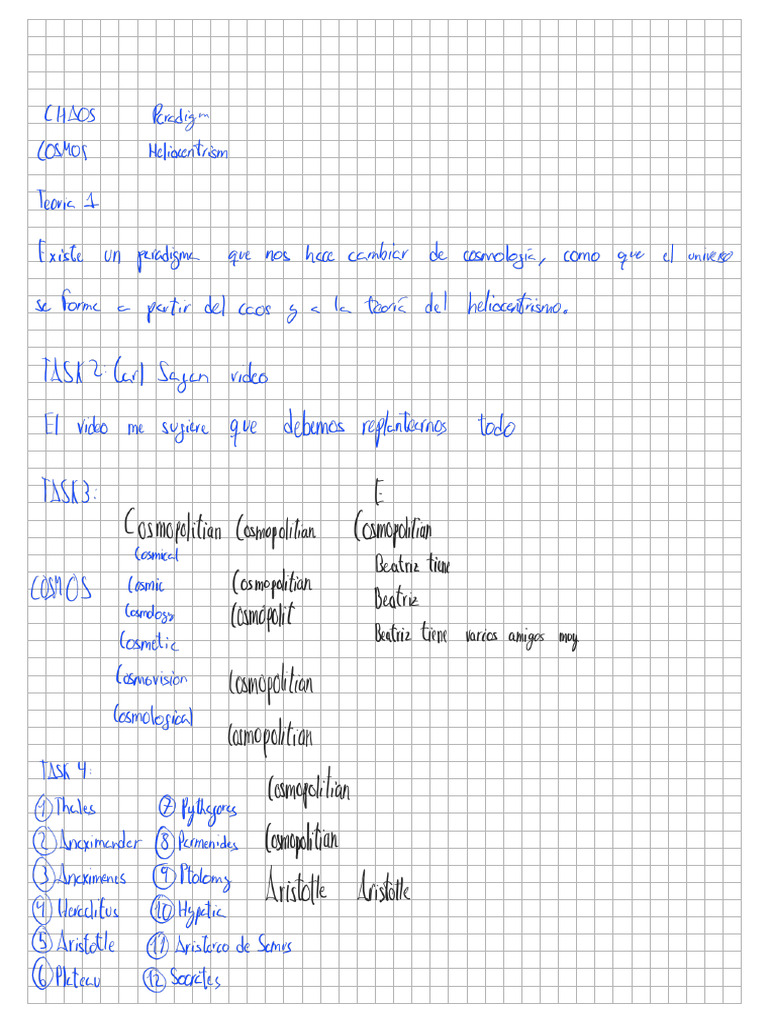 CHAOS Paradigm
COSMOS Heliocentrism
Teoria 1
Existe un paradigma que nos hace cambiar de cosmología, como que el universo
se forme a partir del caos y a la teoría del heliocentrismo.
TASK 2: Carl Sagan video
El video me sugiere que debemos replantearnos todo
TASK 3: E
Cosmopolitian Cosmopolitian Cosmopolitian
Cosmical
Beatriz tiene
COSMOS Cosmic Cosmopolitian
Beatriz
Cosmology Cosmopolit
Cosmetic Beatriz tiene varios amigos muy
Cosmovision Cosmopolitian
Cosmological Cosmopolitian
TASK 4:
Cosmopolitian
1 Thales 7 Pythagores
2 Anaximander 8 Parmenides Cosmopolitian
3 Anaximenes 9 Ptolomy Aristotle Aristotle
4 Heraclitus 10 Hypatia
5 Aristotle 11 Aristarco de Samos
6 Plateau 12 Socrates